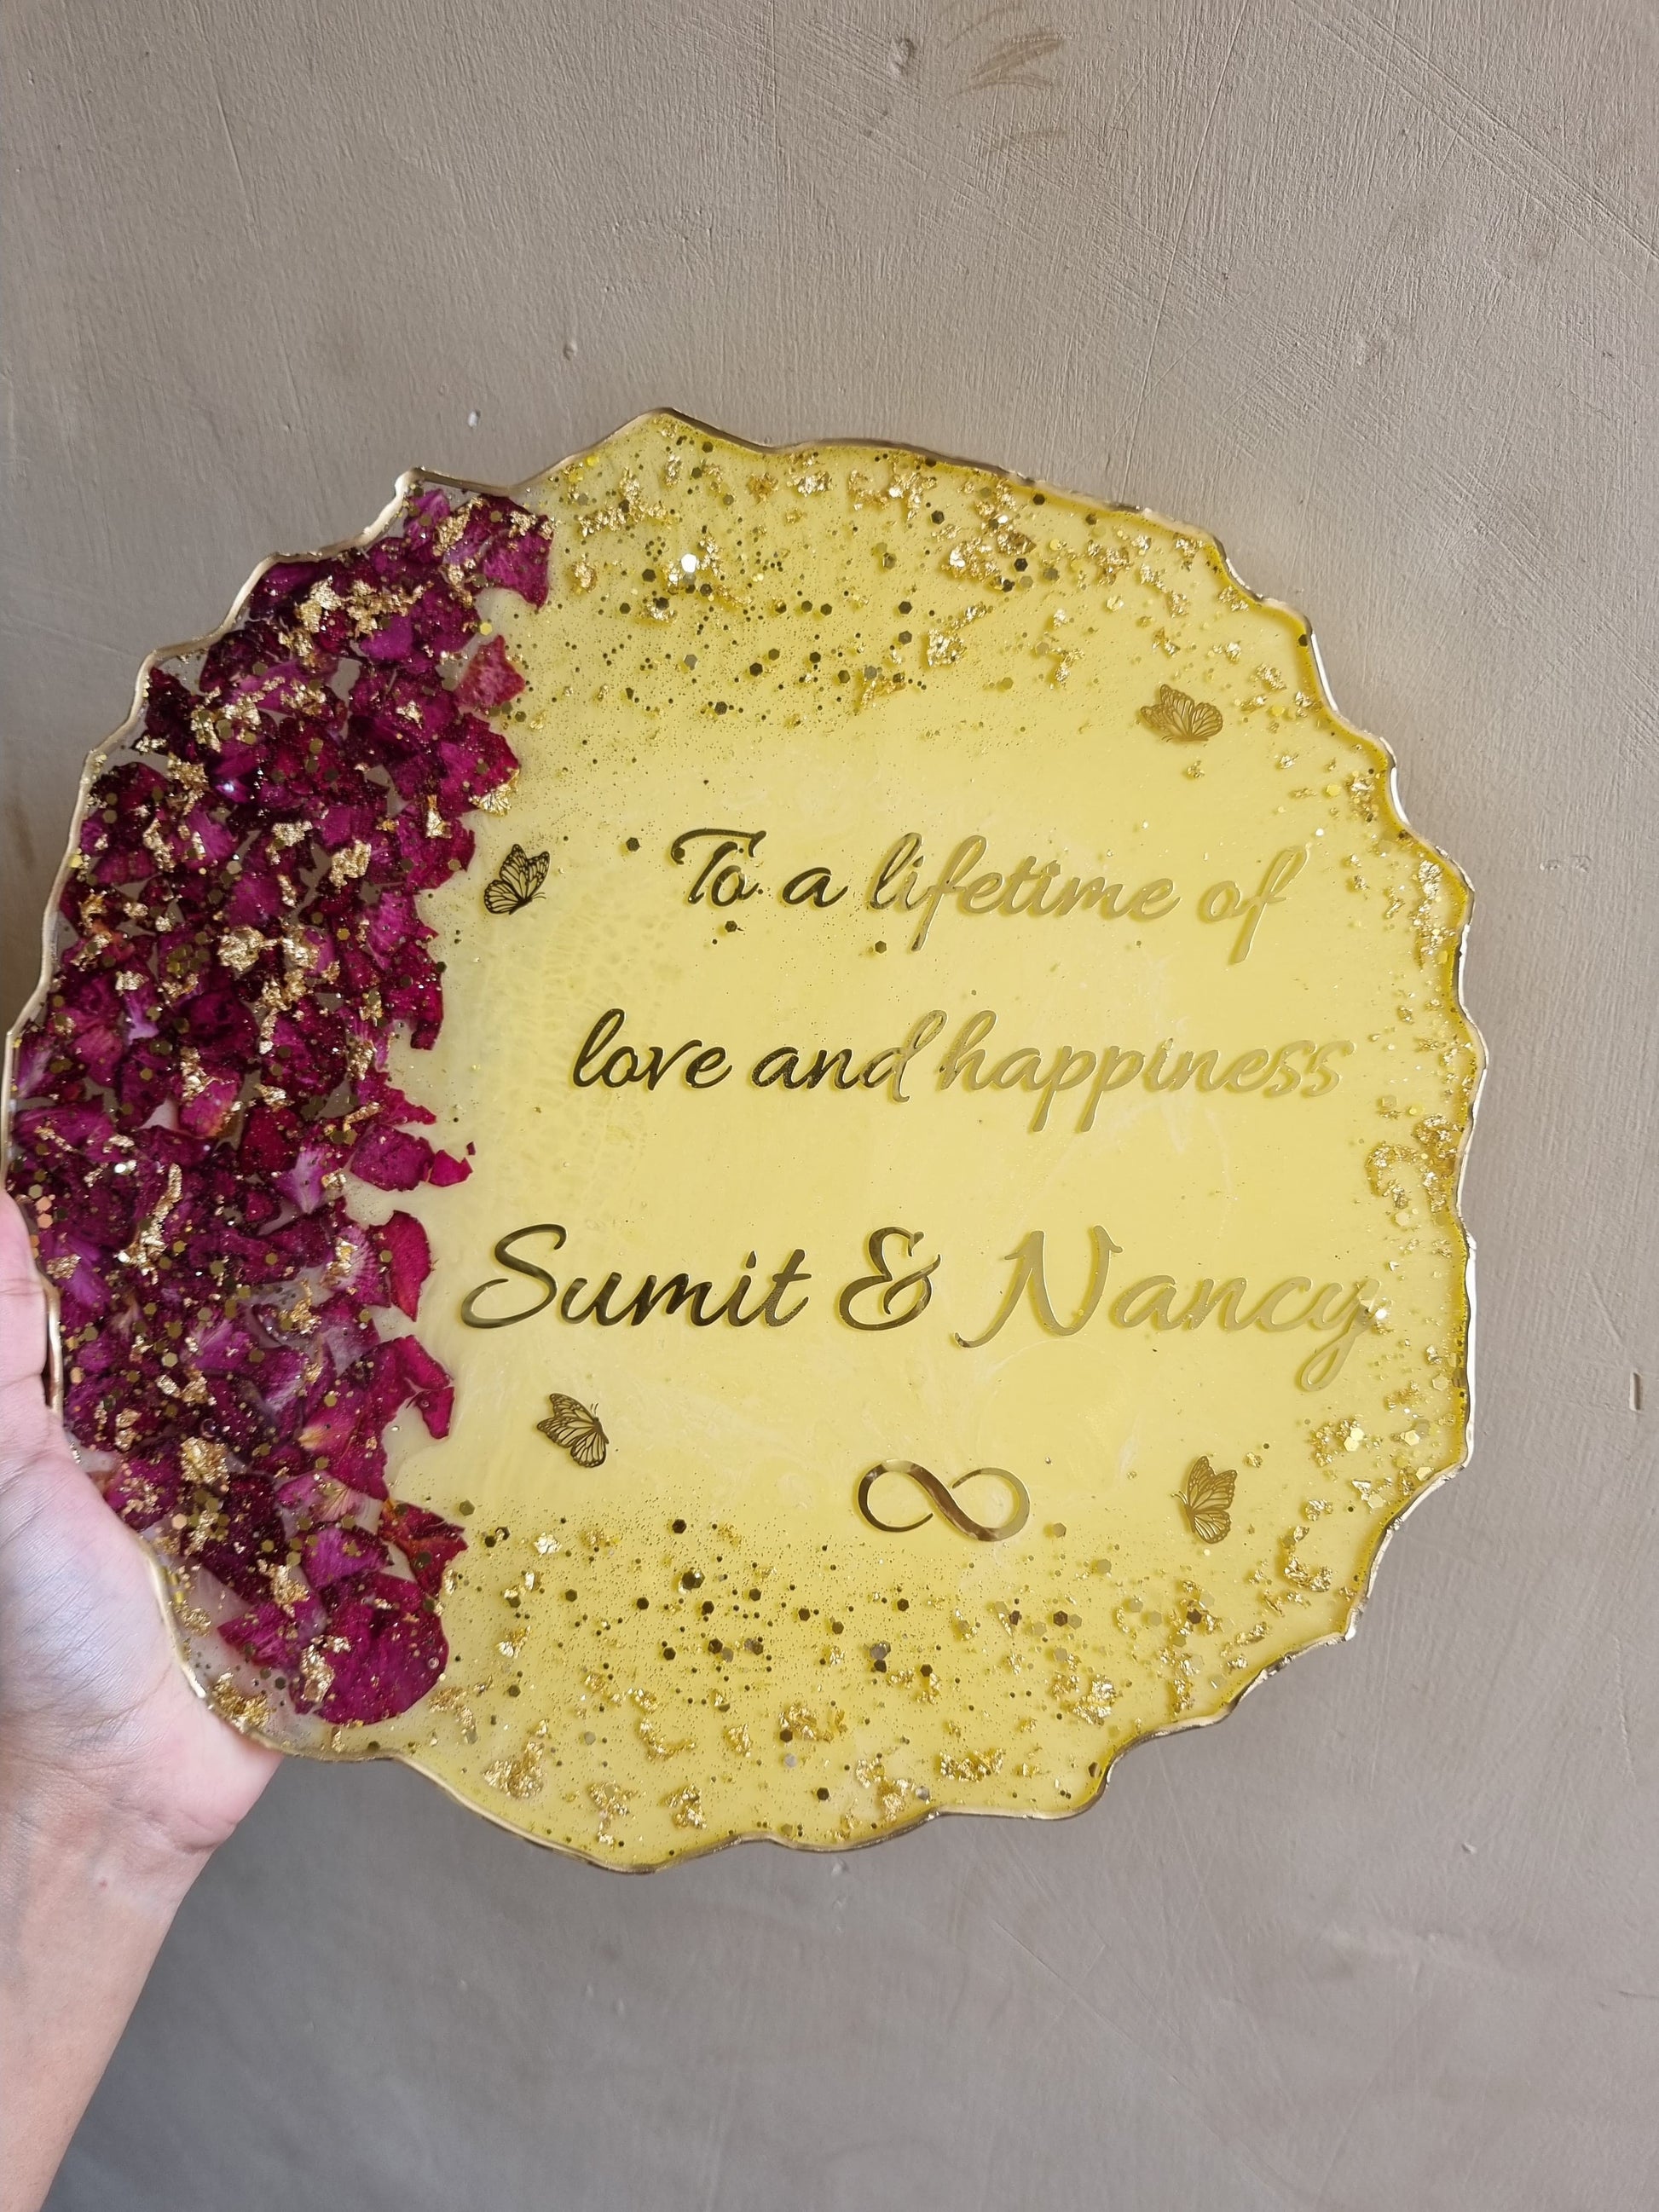 To a lifetime of
love and happiness
Sumit & Nancy